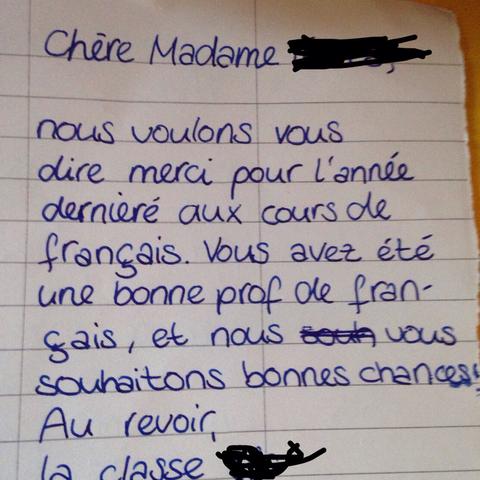 Chère Madame
nous voulons vous
dire merci pour l'année
dernièré aux cours de
français. Vous avez été
une bonne prof de fran-
çais, et nous vous
souhaitons bonnes chances!
Au revoir,
la classe